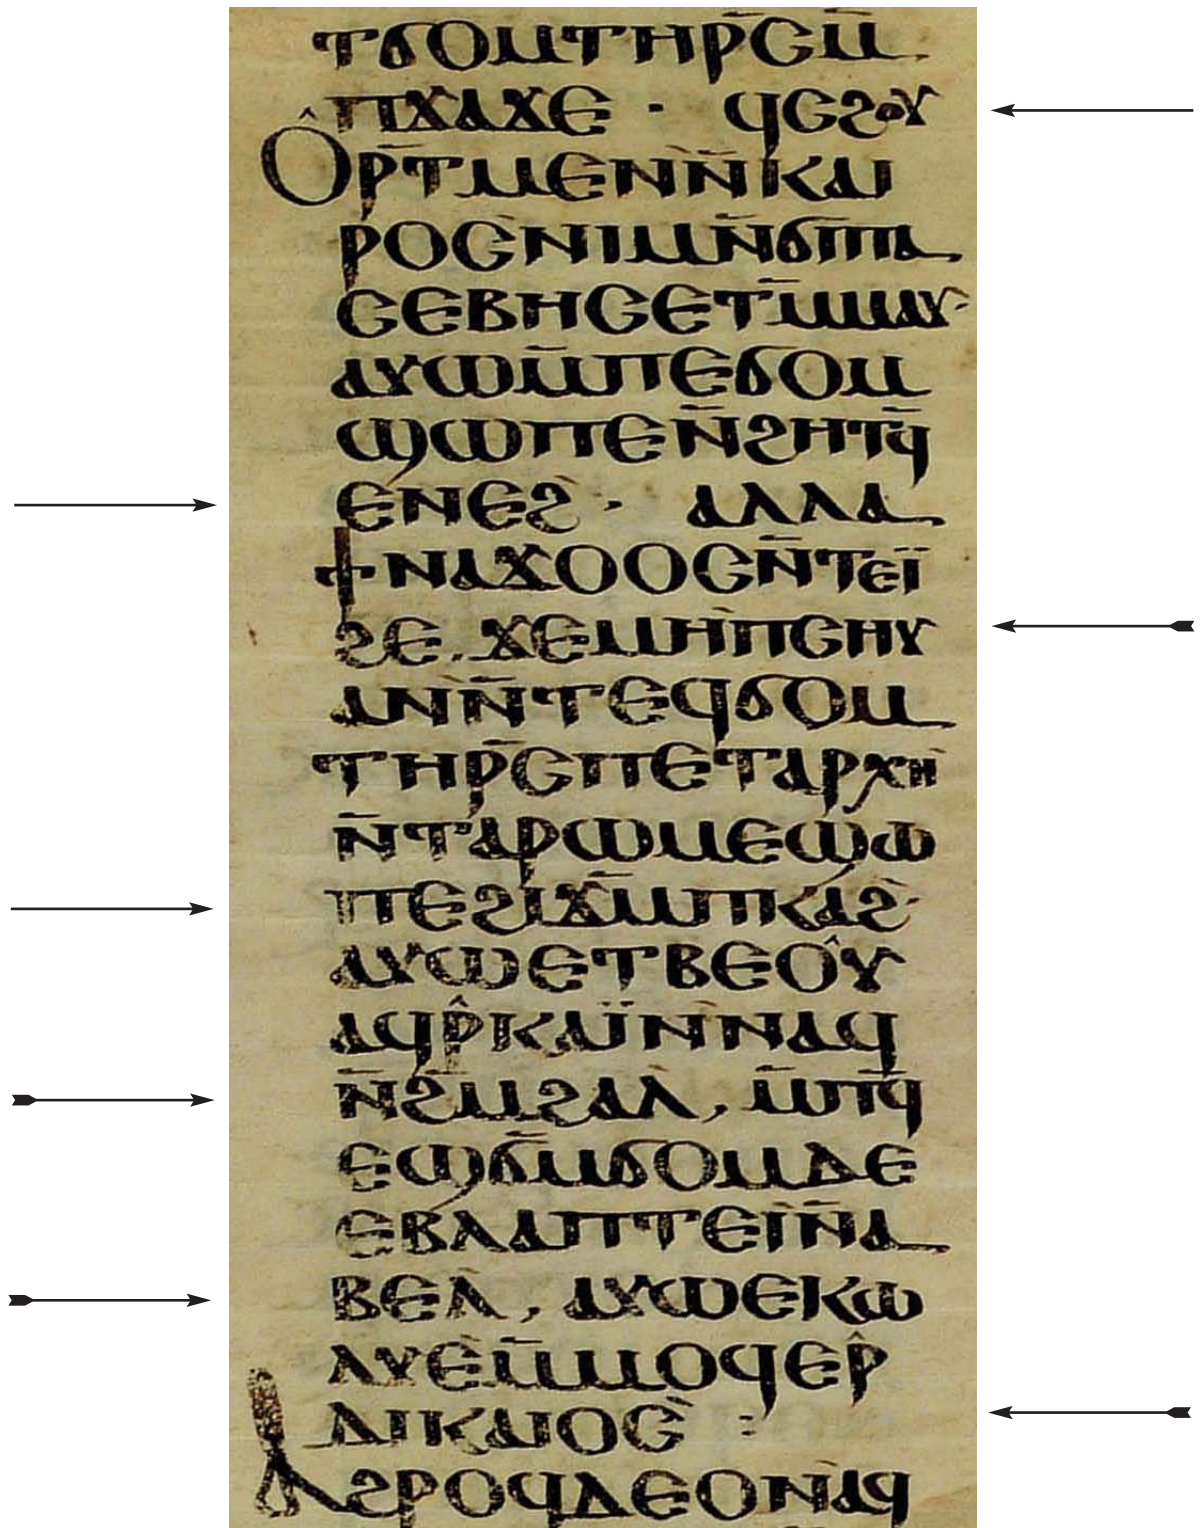 ⲧϭⲟⲙⲧⲏⲣ̄ⲥⲙ̄
ⲡϫⲁϫⲉ · ϥⲥϩⲟⲩ
ⲟ̂ⲣ̄ⲧⲙⲉⲛⲛ̄ⲕⲁⲓ
ⲣⲟⲥⲛⲓⲙⲛ̄ϭⲓⲡⲁ
ⲥⲉⲃⲏⲥⲉⲧⲙ̄ⲙⲁⲩ·
ⲁⲩⲱⲙ̄ⲡⲉϭⲟⲙ
ϣⲱⲡⲉⲛ̄ϩⲏⲧϥ̄
ⲉⲛⲉϩ · ⲁⲗⲗⲁ
ϯⲛⲁϫⲟⲟⲥⲛ̄ⲧⲉⲓ̈
ϩⲉ, ϫⲉⲙⲏⲡⲥⲏⲩ
ⲁⲛⲛ̄ⲧⲉϥϭⲟⲙ
ⲧⲏⲣ̄ⲥⲡⲉⲧⲁⲣⲭⲏ
ⲛ̄ⲧⲁⲣⲱⲙⲉϣⲱ
ⲡⲉϩⲓϫⲙ̄ⲡⲕⲁϩ·
ⲁⲩⲱⲉⲧⲃⲉⲟ̂ⲩ
ⲁϥⲣ̂ⲕⲁⲓ̈ⲛⲛⲁϥ
ⲛ̄ϩⲙϩⲁⲗ, ⲙ̄ⲡϥ̄
ⲉϣϭⲙ̄ϭⲟⲙⲇⲉ
ⲉⲃⲗⲁⲡⲧⲉⲓⲛ̄ⲁ
ⲃⲉⲗ, ⲁⲩⲱⲉⲕⲱ
ⲗⲩⲉⲙ̄ⲙⲟϥⲉⲣ̂
ⲇⲓⲕⲁⲓⲟⲥ :
ⲁϩⲣⲟϥⲇⲉⲟⲛⲁϥ